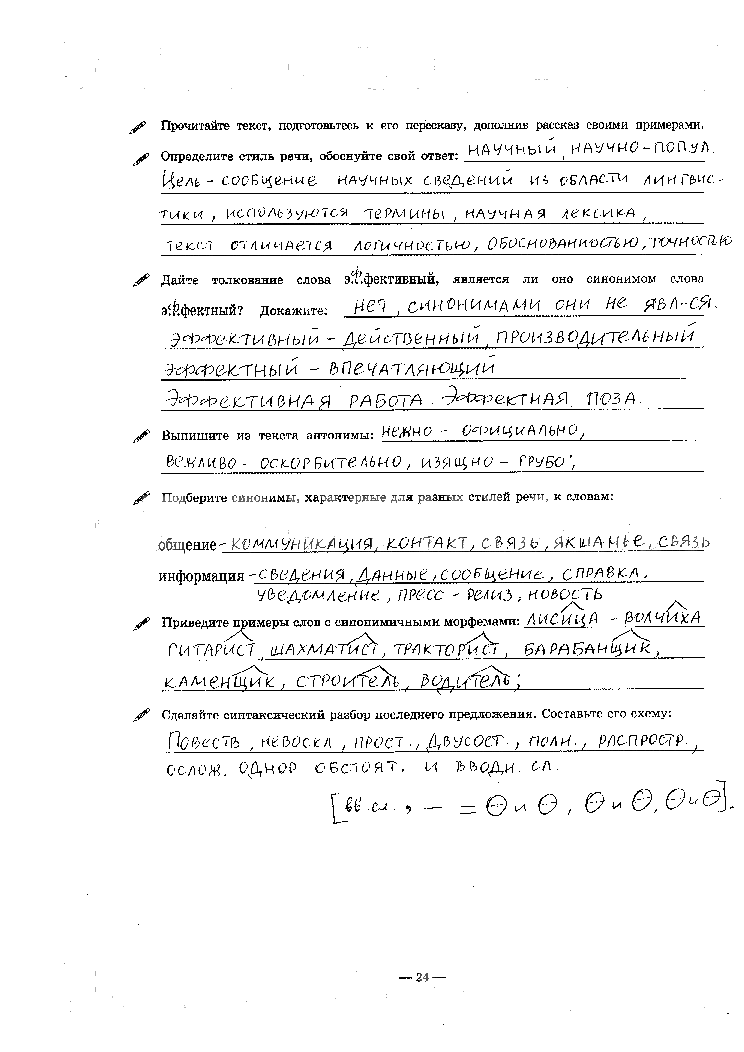 Прочитайте текст, подготовьтесь к его пересказу, дополнив рассказ своими примерами.
Определите стиль речи, обоснуйте свой ответ: НАУЧНЫЙ, НАУЧНО-ПОПУЛ.
Цель - сообщение научных сведений из области лингвис-
тики, используются термины, научная лексика,
текст отличается логичностью, обоснованностью, точностью
Дайте толкование слова эффективный, является ли оно синонимом слова
эффектный? Докажите: Нет, синонимами они не явл-ся.
Эффективный - действенный, производительный
Эффектный - впечатляющий
Эффективная работа. Эффектная поза.
Выпишите из текста антонимы: нежно - официально,
вежливо - оскорбительно, изящно - грубо;
Подберите синонимы, характерные для разных стилей речи, к словам:
общение - коммуникация, контакт, связь, якшанье, связь
информация - сведения, данные, сообщение, справка,
уведомление, пресс-релиз, новость
Приведите примеры слов с синонимичными морфемами: лисица - волчиха
гитарист, шахматист, тракторист, барабанщик,
каменщик, строитель, водитель;
Сделайте синтаксический разбор последнего предложения. Составьте его схему:
Повеств, невоскл, прост., двусост., полн., распростр.,
ослож. однор обстоят. и вводн. сл.
[вв.сл., — = О и О, О и О, О и О].
— 24 —